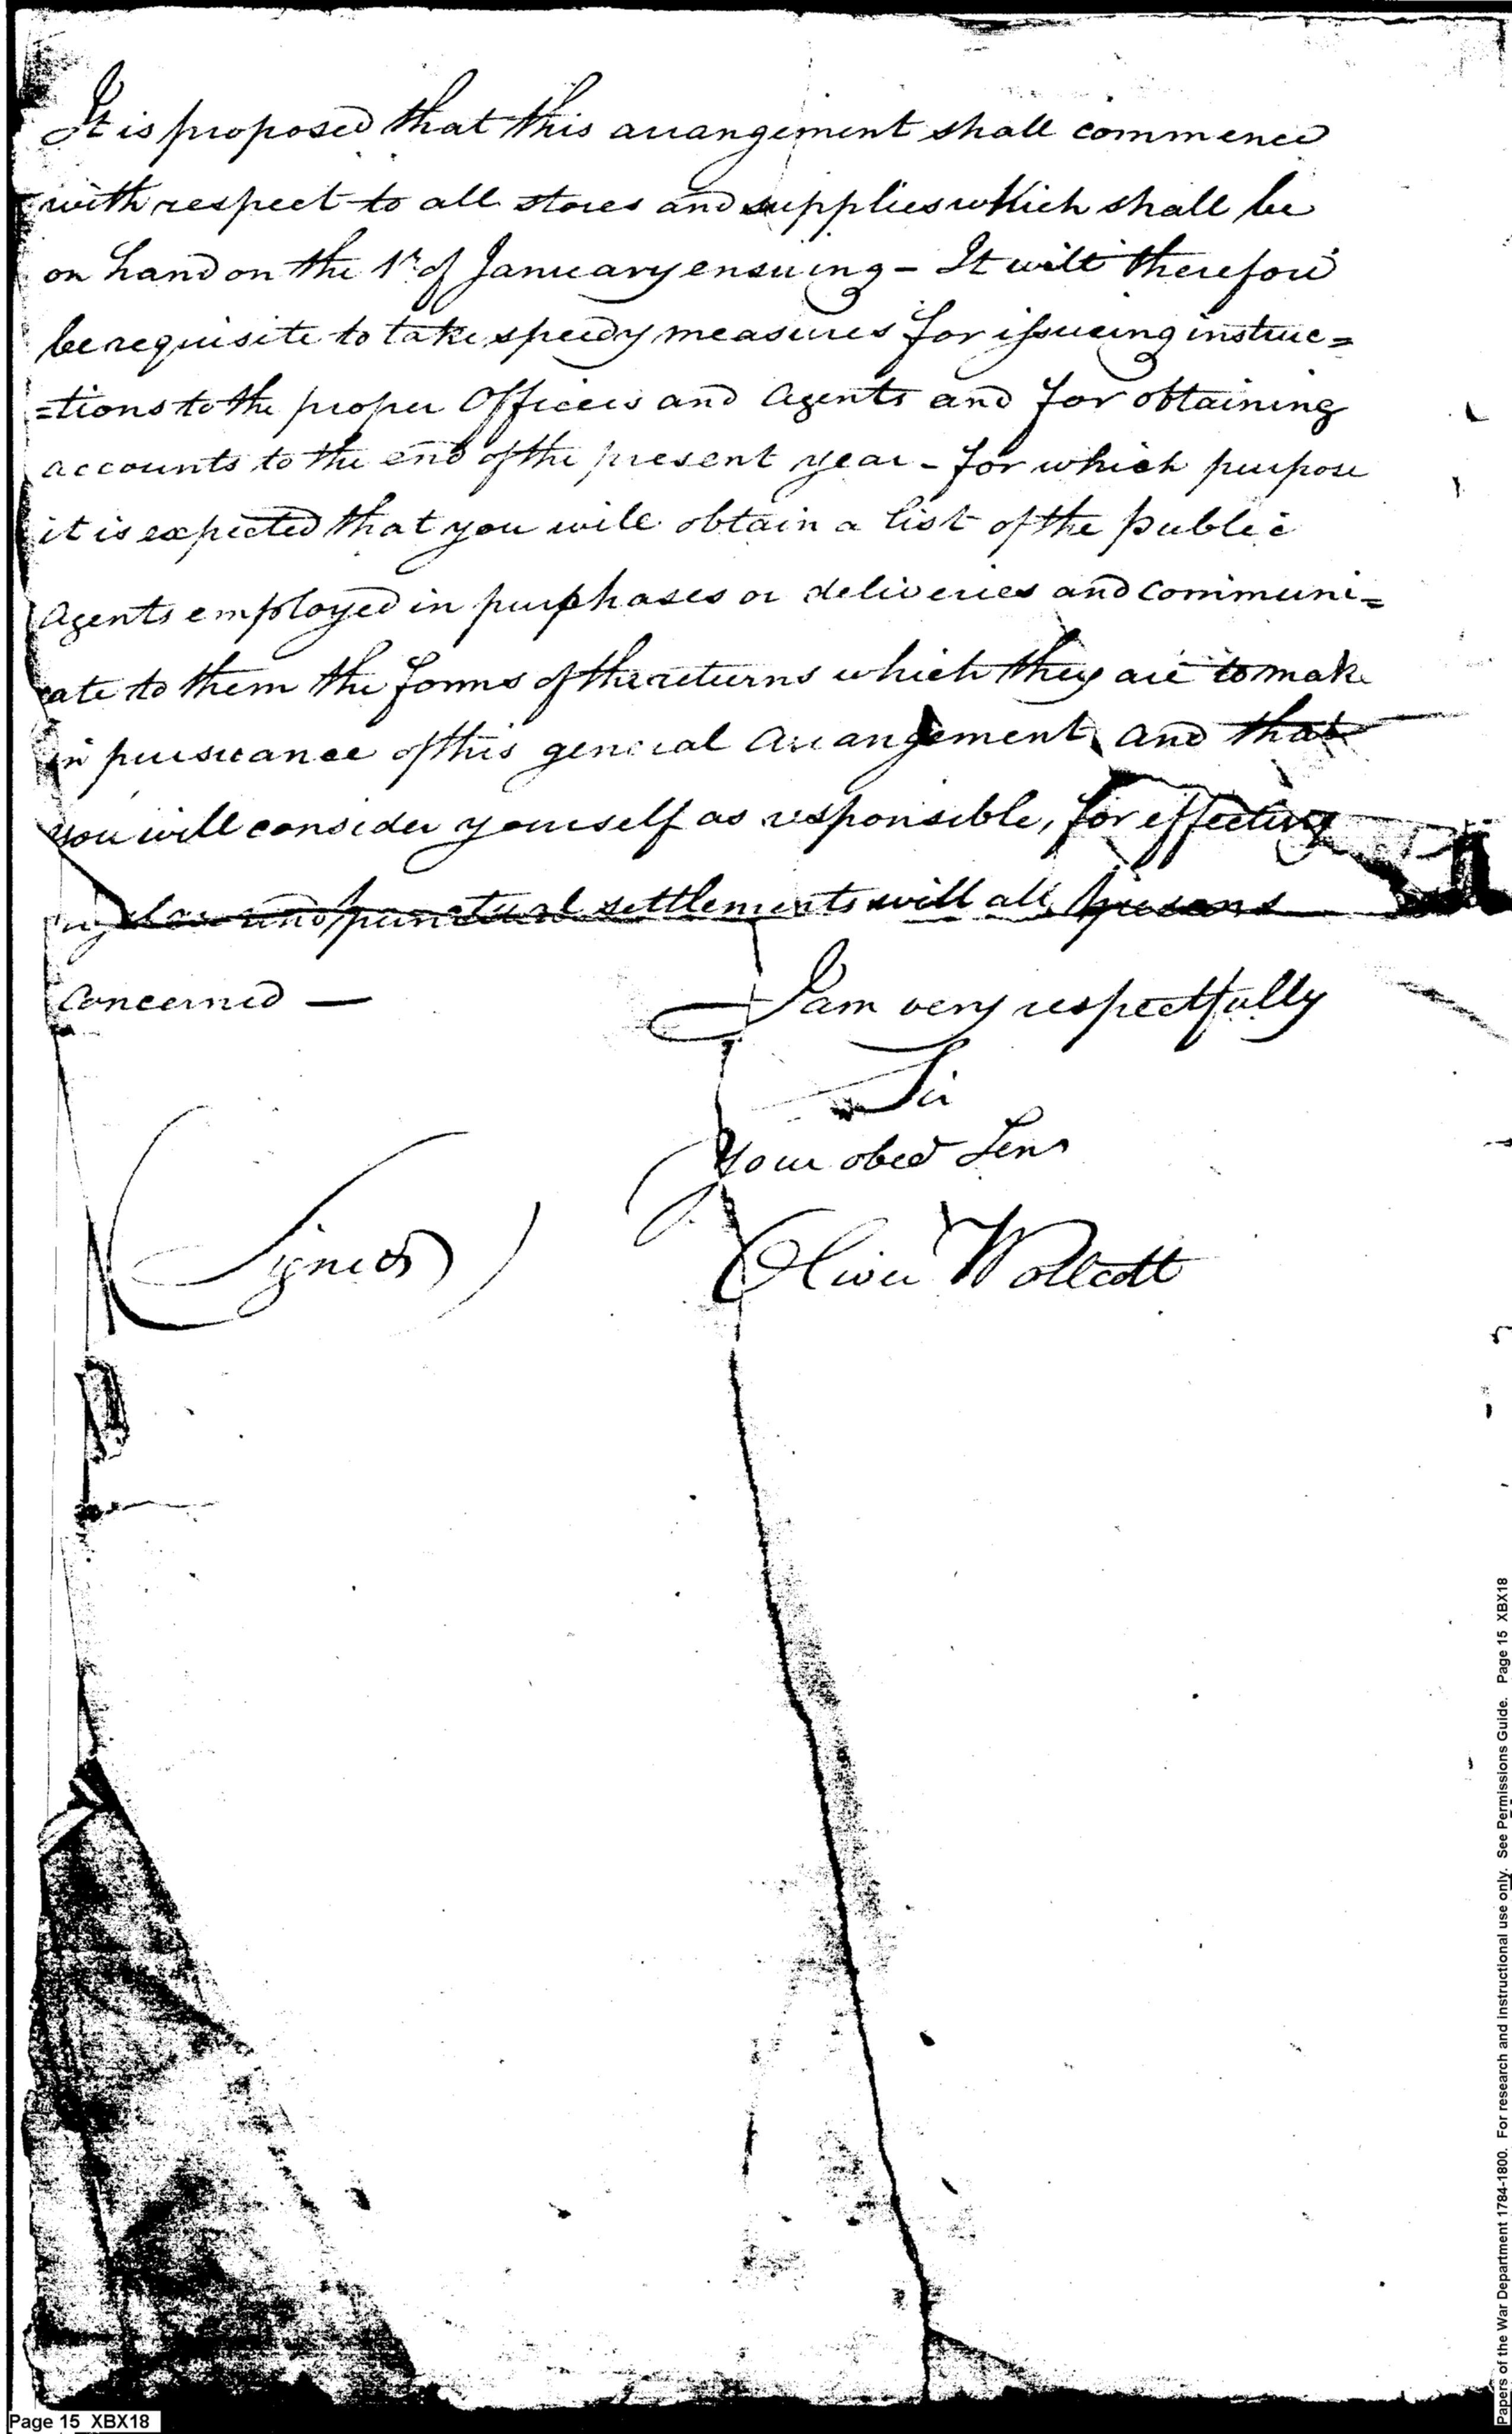 It is proposed that this arrangement shall commence
with respect to all stores and supplies which shall be
on hand on the 1st of January ensuing - It will therefore
be requisite to take speedy measures for issueing instruc=
=tions to the proper Officers and Agents and for obtaining
accounts to the end of the present year - for which purpose
it is expected that you will obtain a list of the public
Agents employed in purchases or deliveries and communi=
cate to them the forms of the returns which they are to make
in pursuance of this general Arrangement, and that
you will consider yourself as responsible, for effecting
regular and punctual settlements with all persons
Concerned —
I am very respectfully
Sir
Your obed Serv
(Signed)
Oliver Wollcott
Page 15 XBX18
Papers of the War Department 1784-1800. For research and instructional use only. See Permissions Guide. Page 15 XBX18